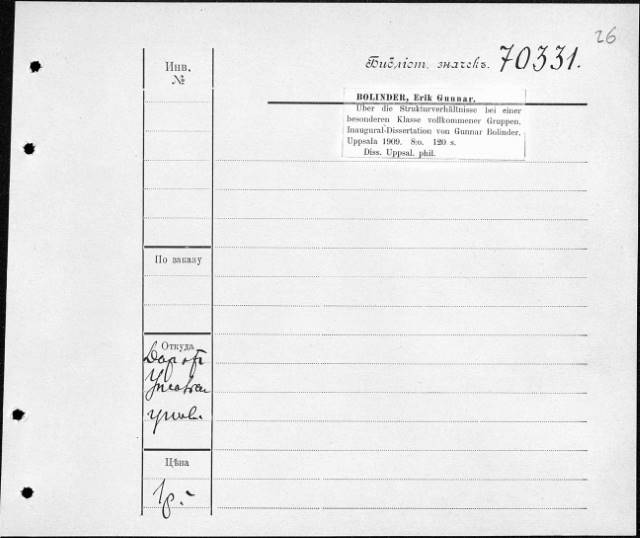 26
Инв.
№
Библіот. значекъ. 70331.
BOLINDER, Erik Gunnar.
Über die Strukturverhältnisse bei einer
besonderen Klasse vollkommener Gruppen.
Inaugural-Dissertation von Gunnar Bolinder.
Uppsala 1909. 8:o. 120 s.
Diss. Uppsal. phil.
По заказу
Откуда
Даръ отъ
Цѣна
1р.-